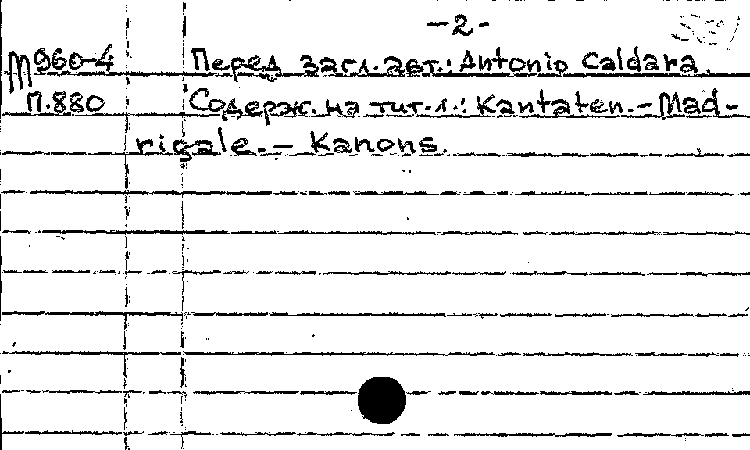 -2-
М960-4 Перед загл. авт.: Antonio Caldara.
П.880 Содерж. на тит. л.: Kantaten. - Mad-
rigale. - Kanons.